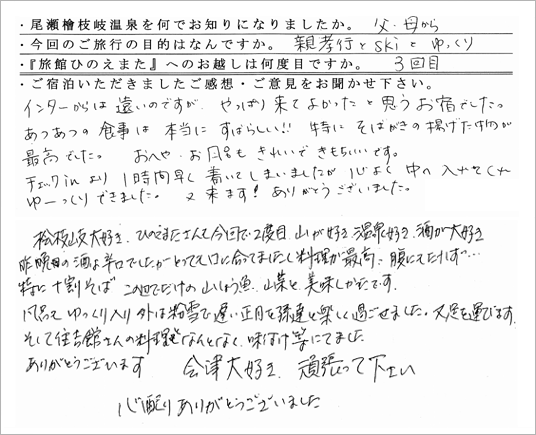 ・尾瀬檜枝岐温泉を何でお知りになりましたか。 父・母から
・今回のご旅行の目的はなんですか。 親孝行とskiとゆっくり
・『旅館ひのえまた』へのお越しは何度目ですか。 3回目
・ご宿泊いただきましたご感想・ご意見をお聞かせ下さい。
インターからは遠いのですが、やっぱり来てよかったと思うお宿でした。
あつあつの食事は本当にすばらしい!! 特にそばがきの揚げた物が
最高でした。 おへや・お風呂もきれいできもちいいです。
チェックinより1時間早く着いてしまいましたが心よく中へ入れてくれ
ゆーっくりできました。 又来ます! ありがとうございました。
桧枝岐大好き、ひのえまたさんも今回で2度目、山が好き、温泉好き、酒が大好き
昨晩の酒は辛口でしたがとっても口に合てました 料理が最高、腹にてたけず…
特に十割そば この地だけの山しょう魚、山菜と美味しかたです。
風呂って ゆっくり入り 外は粉雪で 遅い正月を孫達と楽しく過ごせました。又足を運びます。
そして住吉館さんの料理となんとなく、味付け等にてました
ありがとうございます 会津大好き、頑張って下さい
心配りありがとうございました